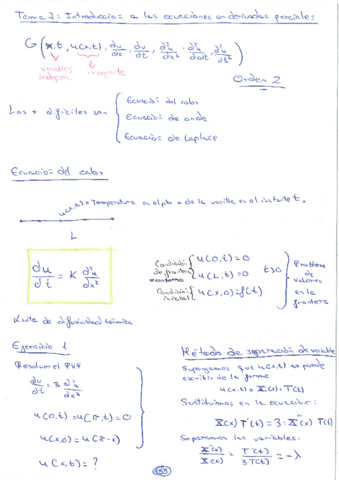 Tema 7: Introducción a las ecuaciones en derivadas parciales
G(x,t, u(x,t), du/dx, du/dt, d²u/dx², d²u/dxdt, d²u/dt²)
variables indepen.
incognita
Orden 2
Las + difíciles son
Ecuación del calor
Ecuación de onda
Ecuación de Laplace
Ecuación del calor
u(x,t) = Temperatura en el pto x de la varilla en el instante t.
L
du/dt = K d²u/dx²
Condición de frontera
u(0,t)=0
u(L,t)=0
t>0
Condición inicial
u(x,0)=f(t)
Problema de valores en la frontera
K cte de difusividad térmica
Ejercicio 1
Resolver el PVF
du/dt = 3 d²u/dx²
u(0,t)=u(π,t)=0
u(x,0)=u(π-x)
u(x,t)=?
Método de separación de variable
Supongamos que u(x,t) se puede
escribir de la forma
u(x,t)=X(x)·T(t)
Sustituimos en la ecuación:
X(x) T'(t) = 3·X''(x) T(t)
Separamos las variables:
X''(x)/X(x) = T'(t)/3T(t) = -λ